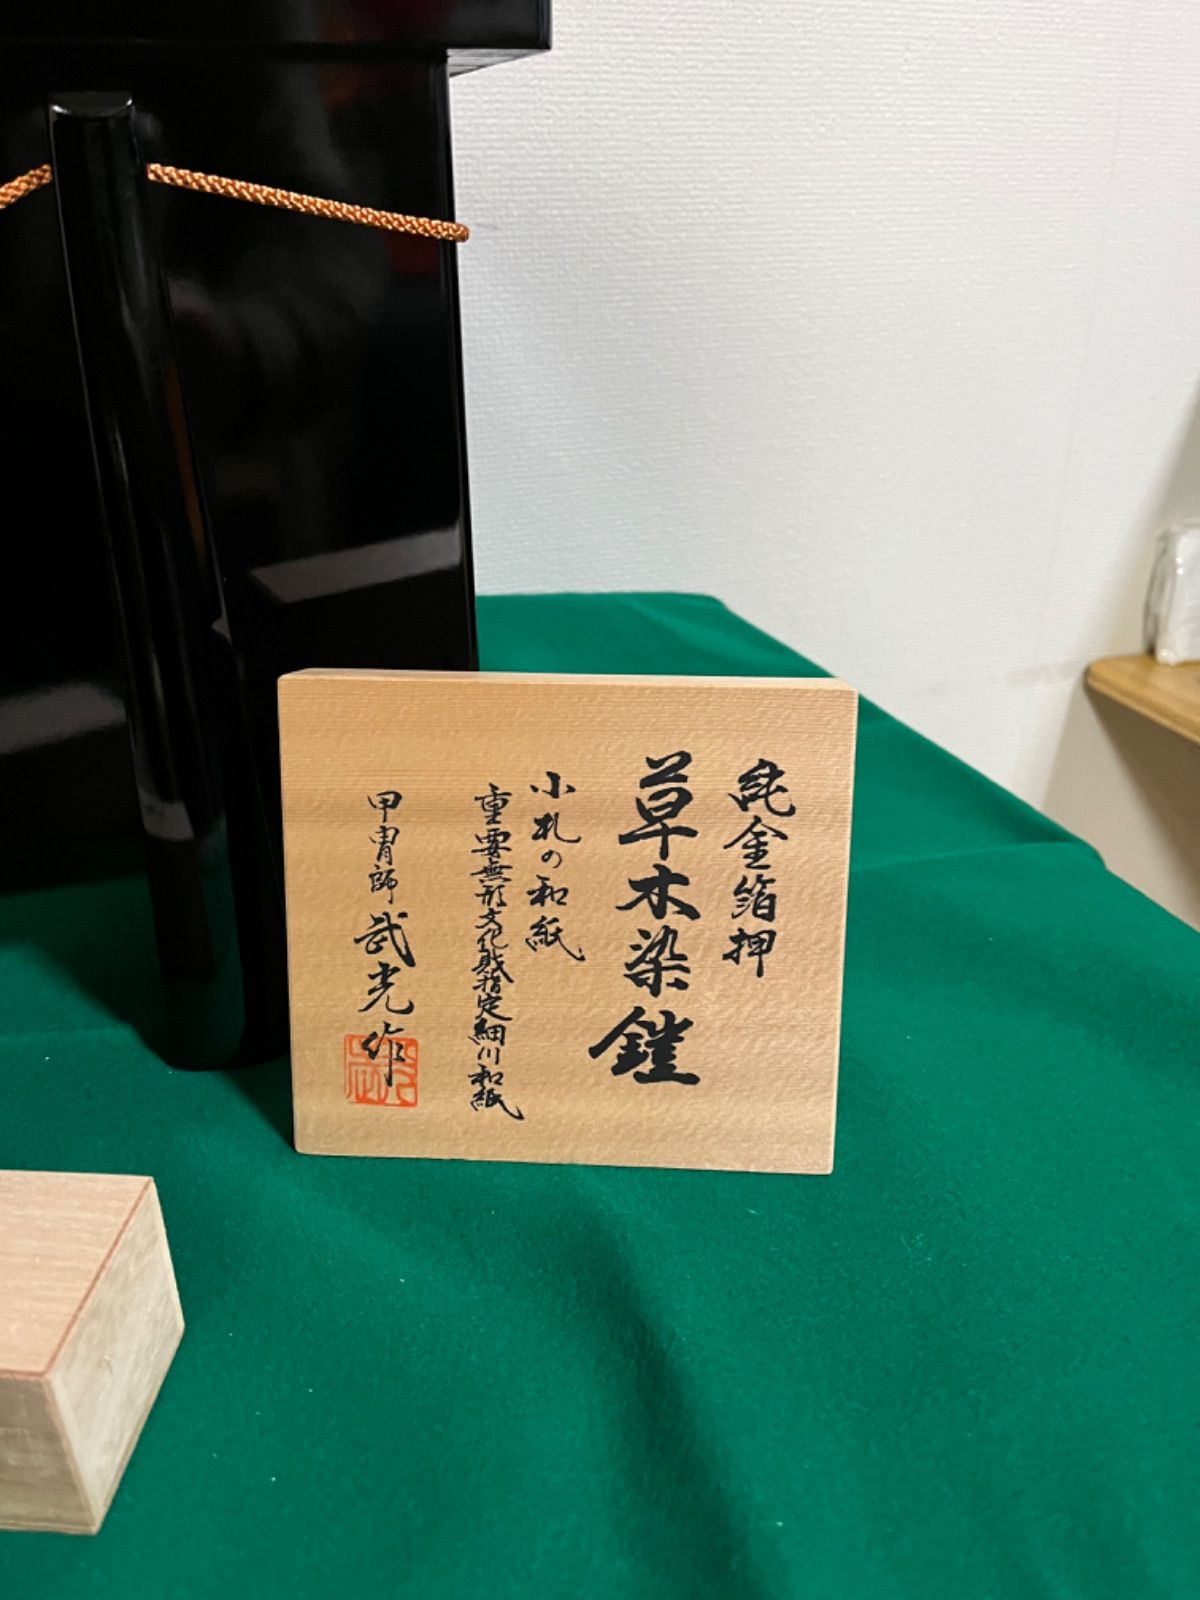 純金箔押
草木染鎧
小札の和紙
重要無形文化財指定細川和紙
甲冑師 武光作